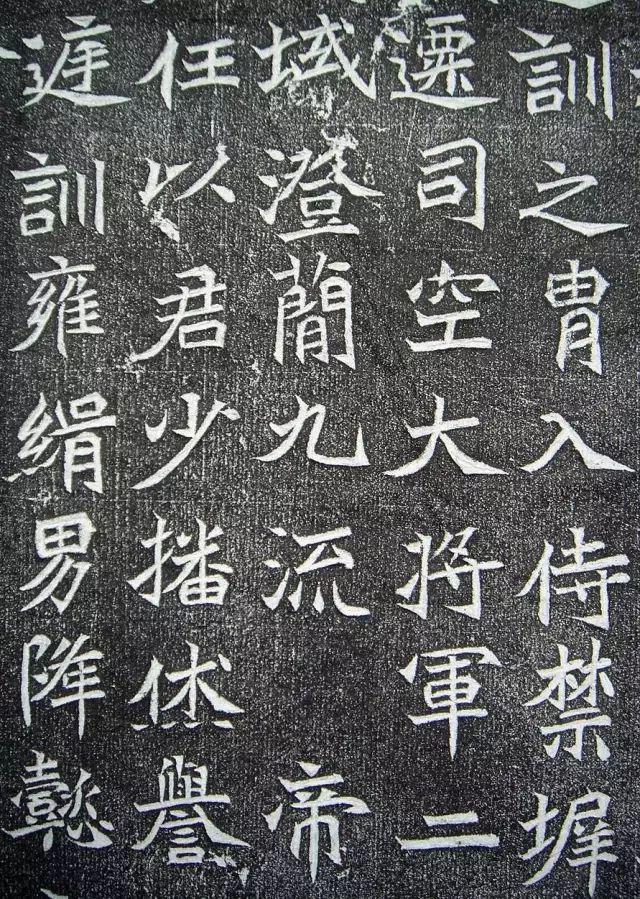 訓之胄入侍禁墀
遷司空大將軍二
域澄簡九流 帝
任以君少播烋譽
遲訓雍緝男降懿